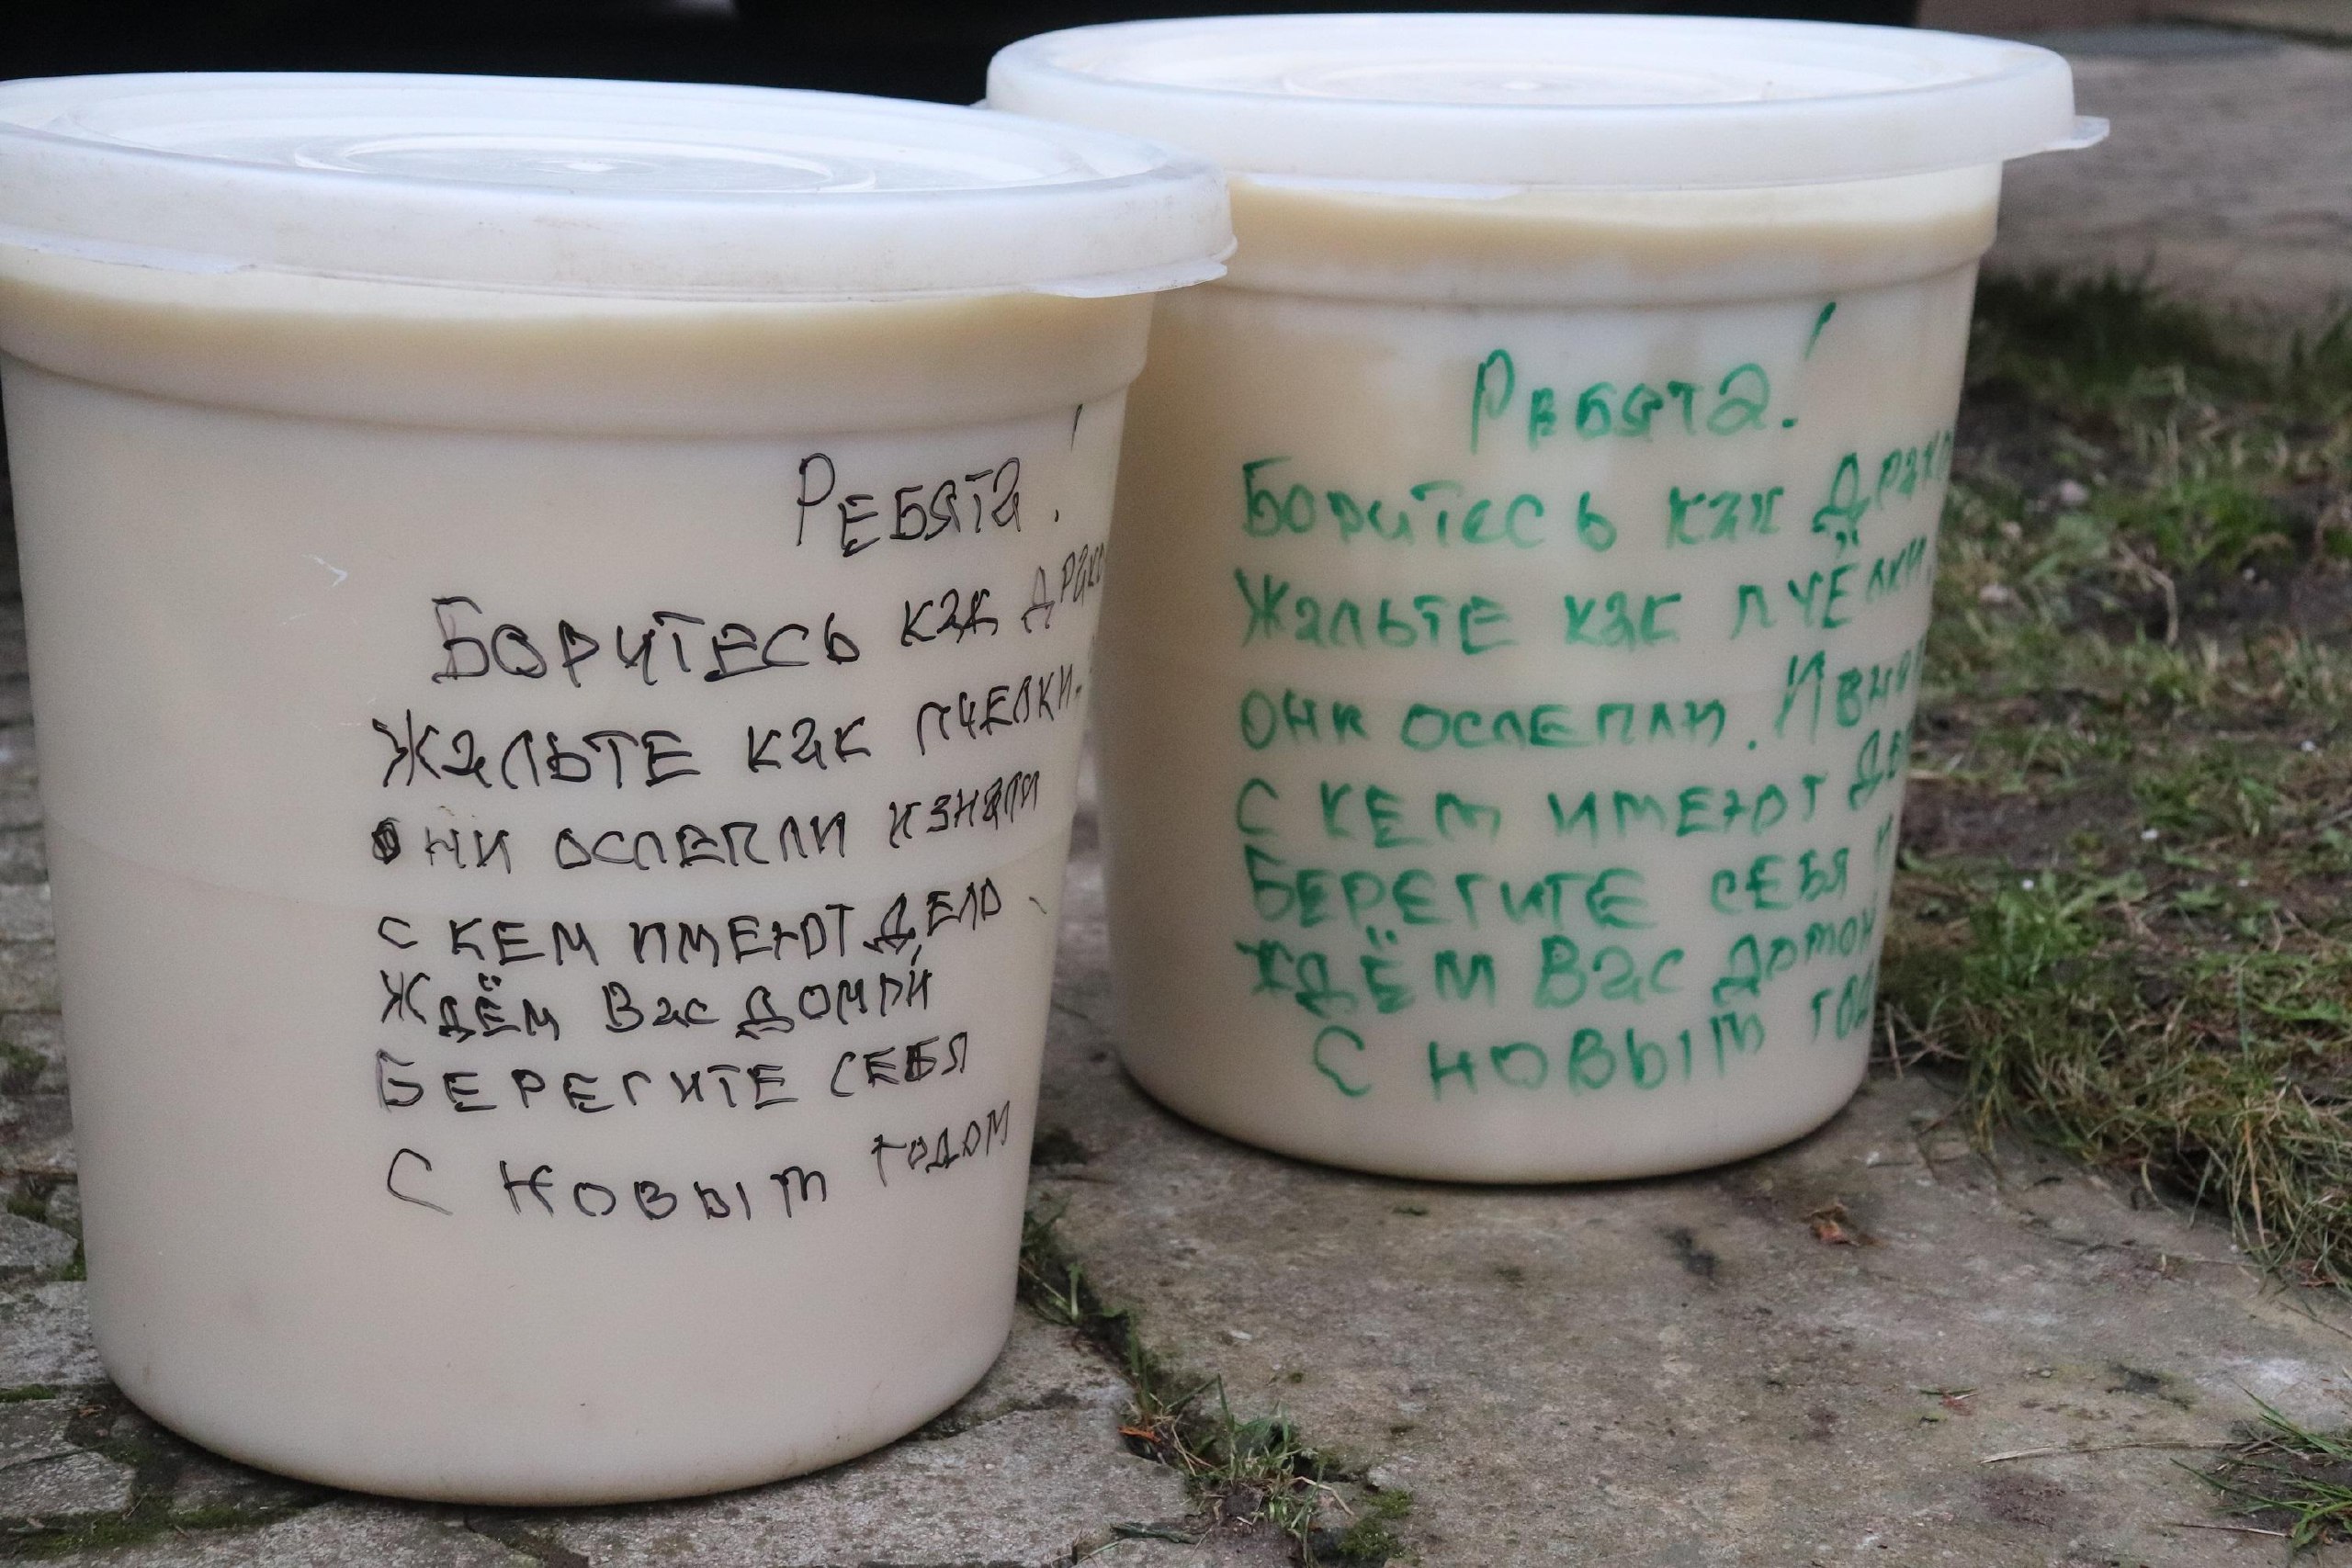 Ребята!
Боритесь как драко
Жальте как пчелки.
они ослепли и знали
с кем имеют дело
Ждём Вас домой
Берегите себя
С новым годом
Ребята!
Боритесь как драко
Жальте как пчёлки.
они ослепли. И
с кем имеют
Берегите себя и
ждём Вас домой
С новым год